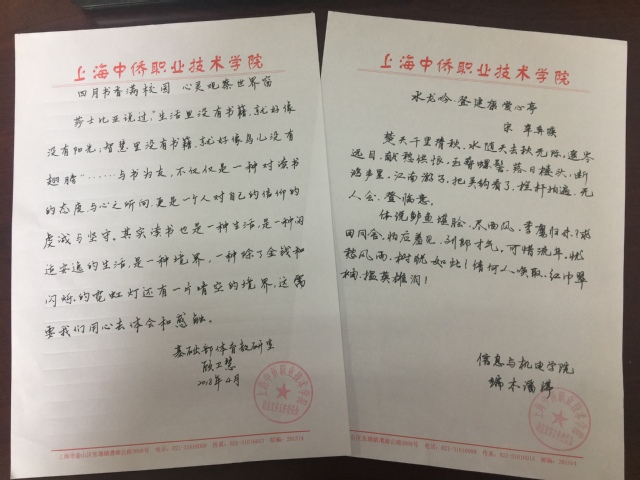 上海中侨职业技术学院
四月书香满校园 心灵观察世界窗
莎士比亚说过，“生活里没有书籍，就好像
没有阳光；智慧里没有书籍，就好像鸟儿没有
翅膀”……与书为友，不仅仅是一种对读书
的态度与心之所向，更是一个人对自己的信仰的
虔诚与坚守。其实读书也是一种生活，是一种闲
适安逸的生活，是一种境界，一种除了金钱和
闪烁的霓虹灯还有一片晴空的境界，这需
要我们用心去体会和感触。
基础部体育教研室
顾卫慧
2018年4月
上海中侨职业技术学院
水龙吟·登建康赏心亭
宋 辛弃疾
楚天千里清秋，水随天去秋无际，遥岑
远目，献愁供恨，玉簪螺髻，落日楼头，断
鸿声里，江南游子，把吴钩看了，栏杆拍遍，无
人会，登临意。
休说鲈鱼堪脍，尽西风，季鹰归未？求
田问舍，怕应羞见，刘郎才气，可惜流年，忧
愁风雨，树犹如此！倩何人唤取，红巾翠
袖，揾英雄泪！
信息与机电学院